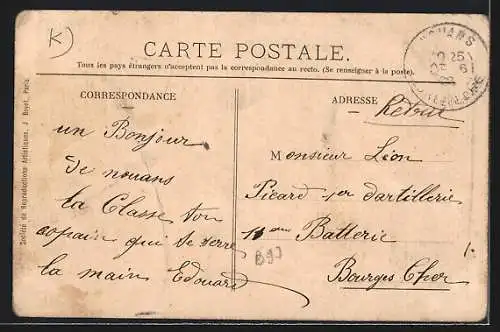 K
CARTE POSTALE.
Tous les pays étrangers n'acceptent pas la correspondance au recto. (Se renseigner à la poste).
CORRESPONDANCE
un Bonjour
de nouans
la Classe ton
copain qui te serre
la main Edouard
ADRESSE
Monsieur Léon
Picard 1er d'artillerie
11eme Batterie
Bourges Cher
B97
NOUANS
Société de Reproductions Artistiques, J. Bayet, Paris.